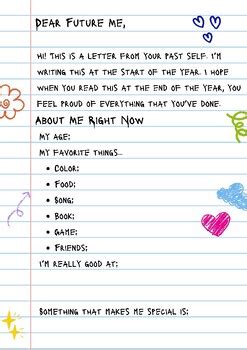 Dear Future Me,
Hi! This is a letter from your past self. I'm
writing this at the start of the year. I hope
when you read this at the end of the year, you
feel proud of everything that you've done.
About Me Right Now
My age:
My favorite things...
• Color:
• Food:
• Song:
• Book:
• Game:
• Friends:
I'm really good at:
Something that makes me special is: